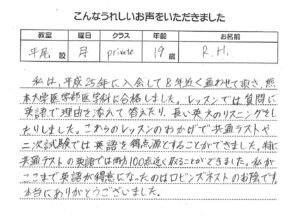 こんなうれしいお声をいただきました
教室 曜日 クラス 年齢 お名前
平尾 校 月 private 19歳 R.H.
私は、平成25年に入会して8年近く通わせて頂き、熊
本大学医学部医学科に合格しました。レッスンでは質問に
英語で理由を添えて答えたり、長い英文のリスニングをし
たりしました。これらのレッスンのおかげで共通テストや
二次試験では英語を得点源とすることができました。特に
共通テストの英語では両方100点近く取ることができました。私が
ここまで英語が得意になったのはロビンズネストのお陰です。
本当にありがとうございました。